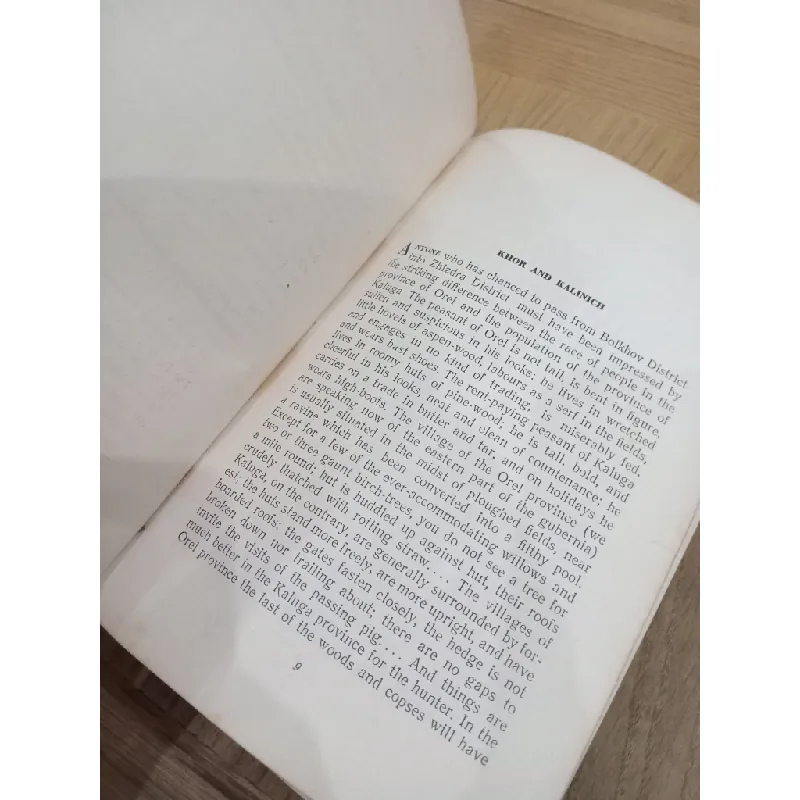 KHOR AND KALINICH
ANYONE who has chanced to pass from Bolkhov District
into Zhizdra District must have been impressed by
the striking difference between the race of people in the
province of Orel and the population of the province of
Kaluga. The peasant of Orel is not tall, is bent in figure,
sullen and suspicious in his looks; he lives in wretched
little hovels of aspen-wood, labours as a serf in the fields,
and engages in no kind of trading, is miserably fed,
and wears bast shoes. The rent-paying peasant of Kaluga
lives in roomy huts of pine-wood; he is tall, bold, and
cheerful in his looks, neat and clean of countenance; he
carries on a trade in butter and tar, and on holidays he
wears high-boots. The village of the Orel province (we
are speaking now of the eastern part of the gubernia)
is usually situated in the midst of ploughed fields, near
a ravine which has been converted into a filthy pool.
Except for a few of the ever-accommodating willows and
two or three gaunt birch-trees, you do not see a tree for
a mile round; hut is huddled up against hut, their roofs
crudely thatched with rotting straw.... The villages of
Kaluga, on the contrary, are generally surrounded by for-
est; the huts stand more freely, are more upright, and have
boarded roofs; the gates fasten closely, the hedge is not
broken down nor trailing about; there are no gaps to
invite the visits of the passing pig.... And things are
much better in the Kaluga province for the hunter. In the
Orel province the last of the woods and copses will have
9